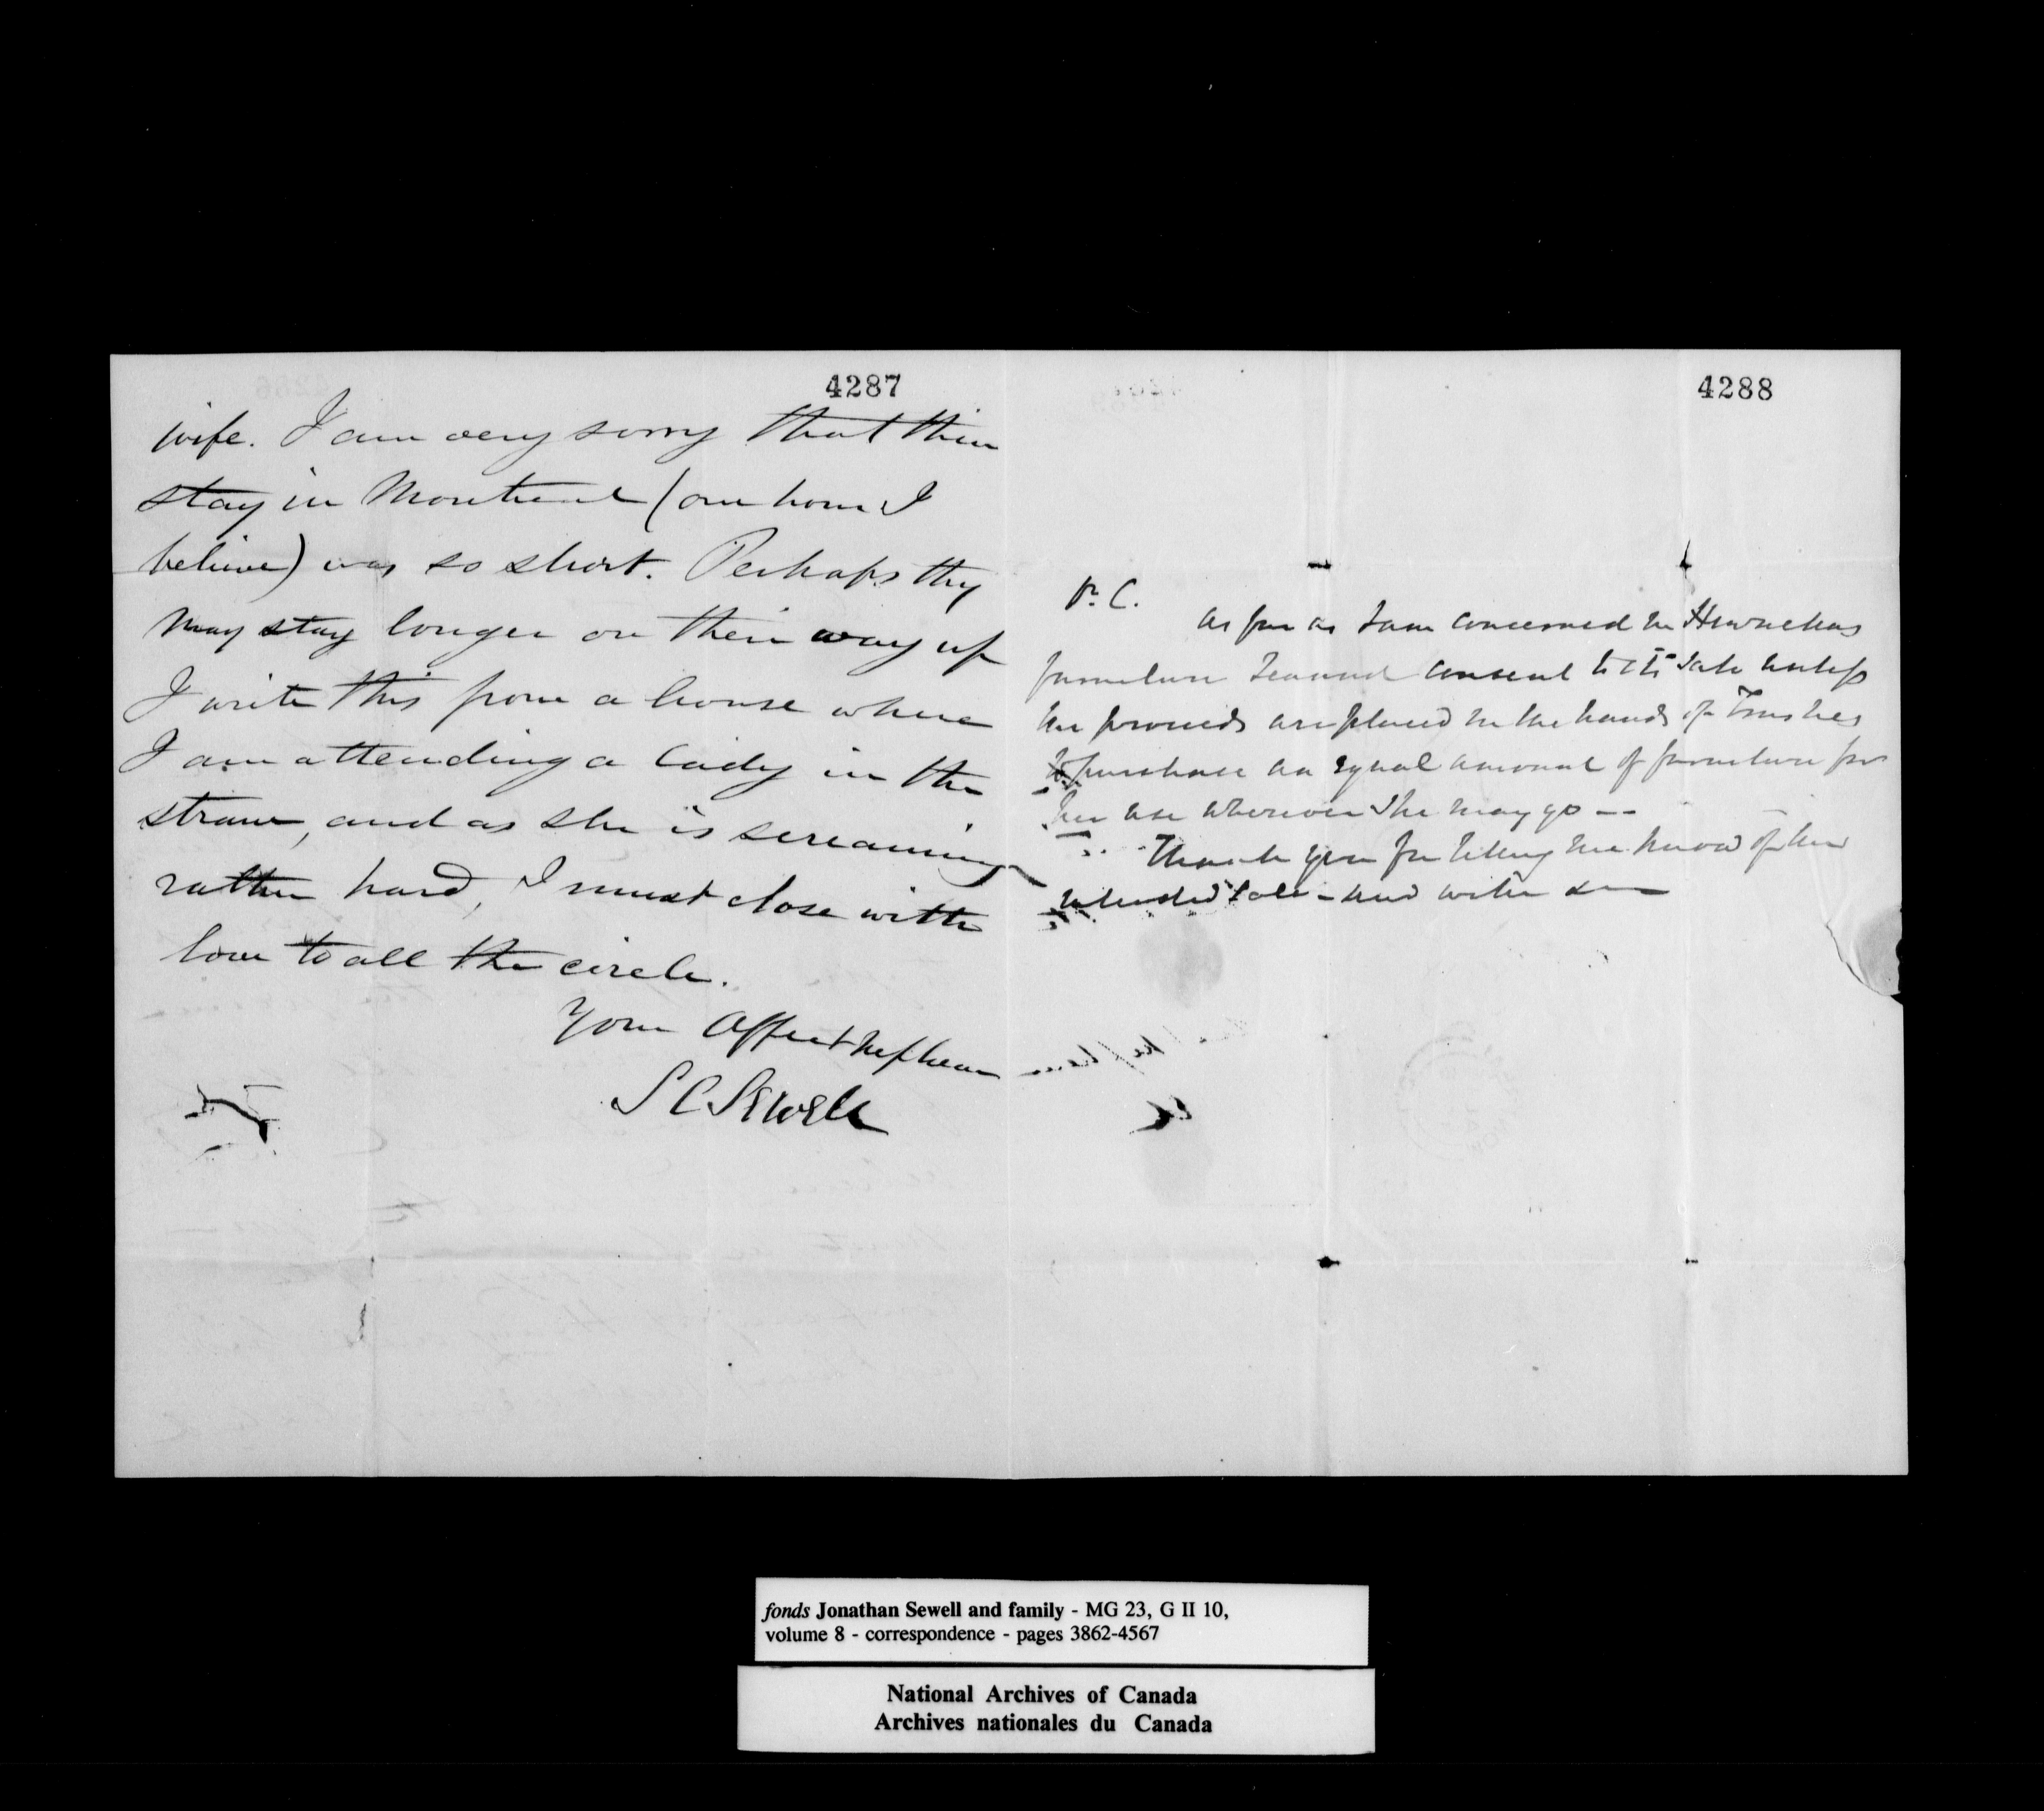 4287
wife. I am very sorry that their
stay in Montreal (one hour I
believe) was so short. Perhaps they
may stay longer on their way up
I write this from a house where
I am attending a Lady in the
straw, and as she is screaming
rather hard, I must close with
love to all the circle.
Your Affect Nephew
S C Sewell
4288
as far as I am concerned in Henrietta's
furniture I cannot consent to its sale unless
the proceeds are placed in the hands of Trustees
to purchase an equal amount of furniture for
her use wherever she may go --
Thank you for letting me know of the
intended sale - and with
fonds Jonathan Sewell and family - MG 23, G II 10,
volume 8 - correspondence - pages 3862-4567
National Archives of Canada
Archives nationales du Canada